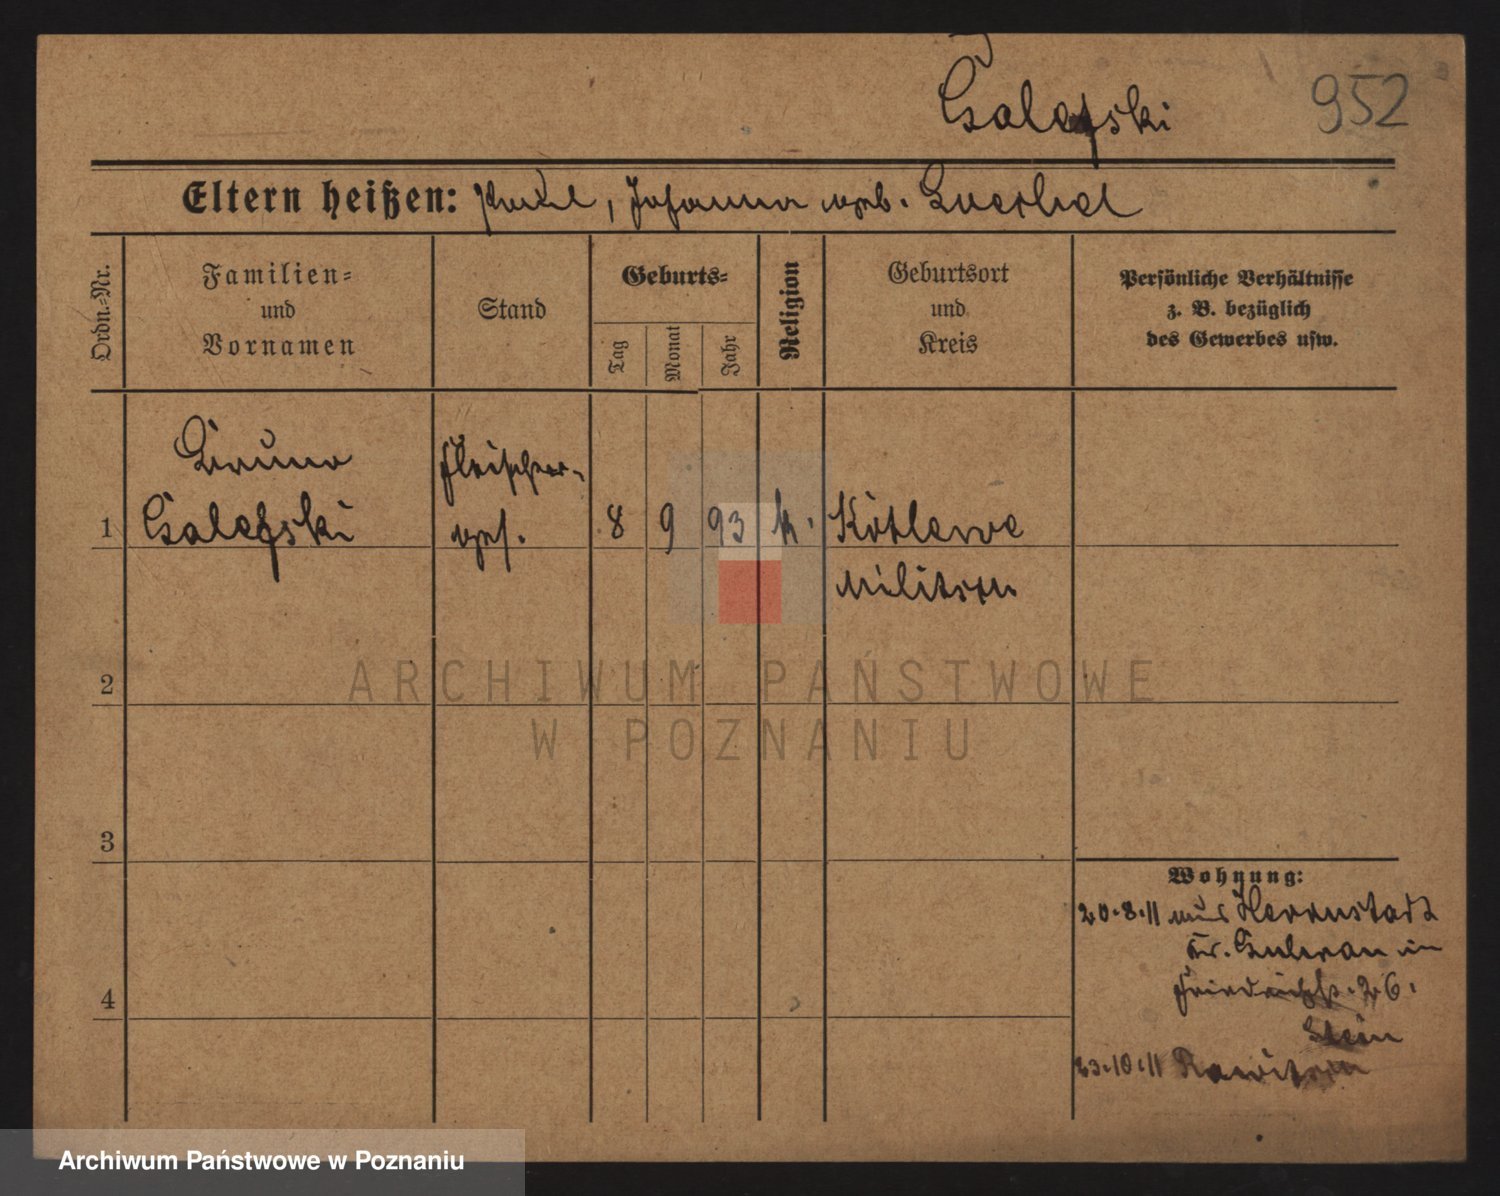 Galefski
952
Eltern heißen: Paul, Johanna geb.
Ordn.=Nr.
Familien=
und
Vornamen
Stand
Geburts=
Tag
Monat
Jahr
Religion
Geburtsort
und
Kreis
Persönliche Verhältnisse
z. B. bezüglich
des Gewerbes usw.
1
Bruno
Galefski
Fleischer-
ges.
8
9
93
k.
Kotlewe
Militsch
2
3
4
Wohnung:
20.8.11 aus Herrnstadt
Kr. Guhrau in
Friedrichstr. 26.
Stein
23.10.11 Rawitsch
ARCHIWUM PAŃSTWOWE
W POZNANIU
Archiwum Państwowe w Poznaniu